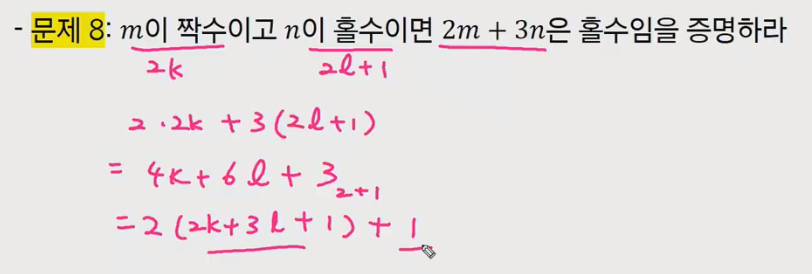 - 문제 8: m이 짝수이고 n이 홀수이면 2m + 3n은 홀수임을 증명하라
2k 2l+1
2 · 2k + 3 (2l+1)
= 4k + 6l + 3
2+1
= 2 (2k+3l+1) + 1